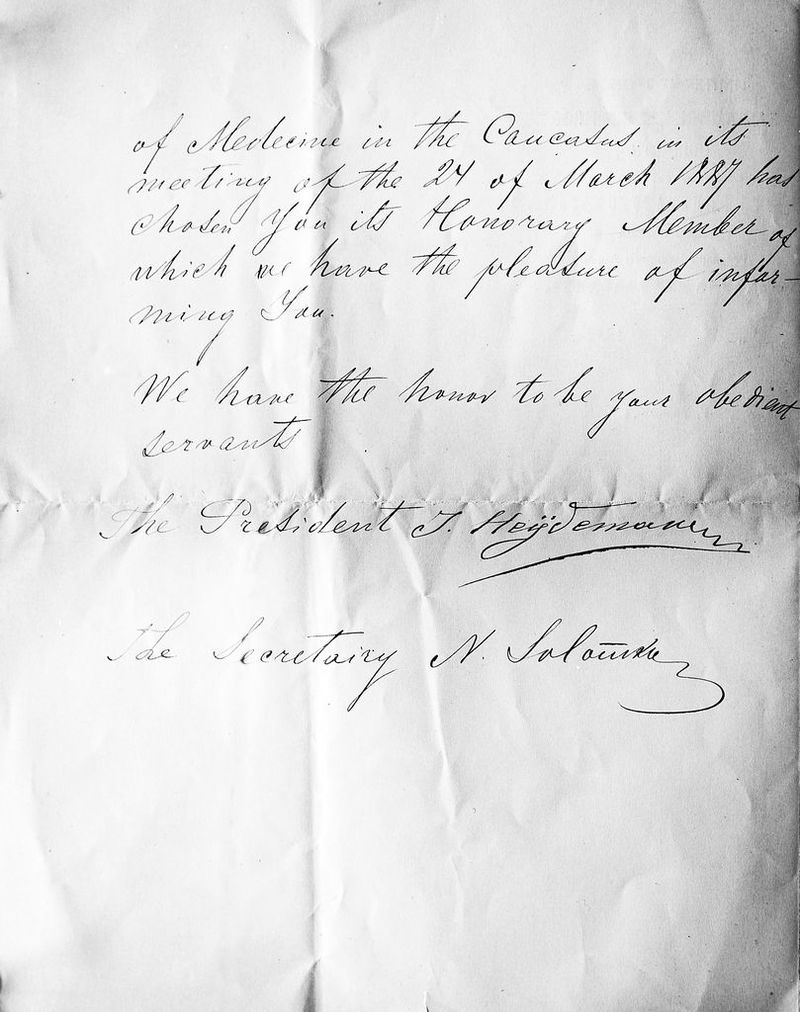 of Medecine in the Caucasus in its
meeting of the 24 of March 1887 has
chosen You its Honorary Member of
which we have the pleasure of infor-
ming You.
We have the honor to be your obedient
servants
The President J. Heÿdemann
The Secretairy N.